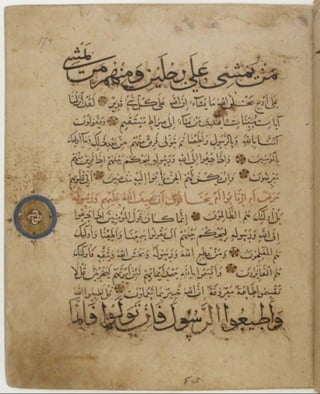 من يمشي على رجلين ومنهم من يمشي
على اربع يخلق الله ما يشاء ان الله على كل شيء قدير لقد انزلنا
ايات مبينات والله يهدي من يشاء الى صراط مستقيم ويقولون
امنا بالله وبالرسول واطعنا ثم يتولى فريق منهم من بعد ذلك وما اولئك
بالمؤمنين واذا دعوا الى الله ورسوله ليحكم بينهم اذا فريق منهم
معرضون وان يكن لهم الحق ياتوا اليه مذعنين افي قلوبهم
مرض ام ارتابوا ام يخافون ان يحيف الله عليهم ورسوله
بل اولئك هم الظالمون انما كان قول المؤمنين اذا دعوا
الى الله ورسوله ليحكم بينهم ان يقولوا سمعنا واطعنا واولئك
هم المفلحون ومن يطع الله ورسوله ويخش الله ويتقه فاولئك
هم الفائزون واقسموا بالله جهد ايمانهم لئن امرتهم ليخرجن قل لا
تقسموا طاعة معروفة ان الله خبير بما تعملون قل اطيعوا الله
واطيعوا الرسول فان تولوا فانما